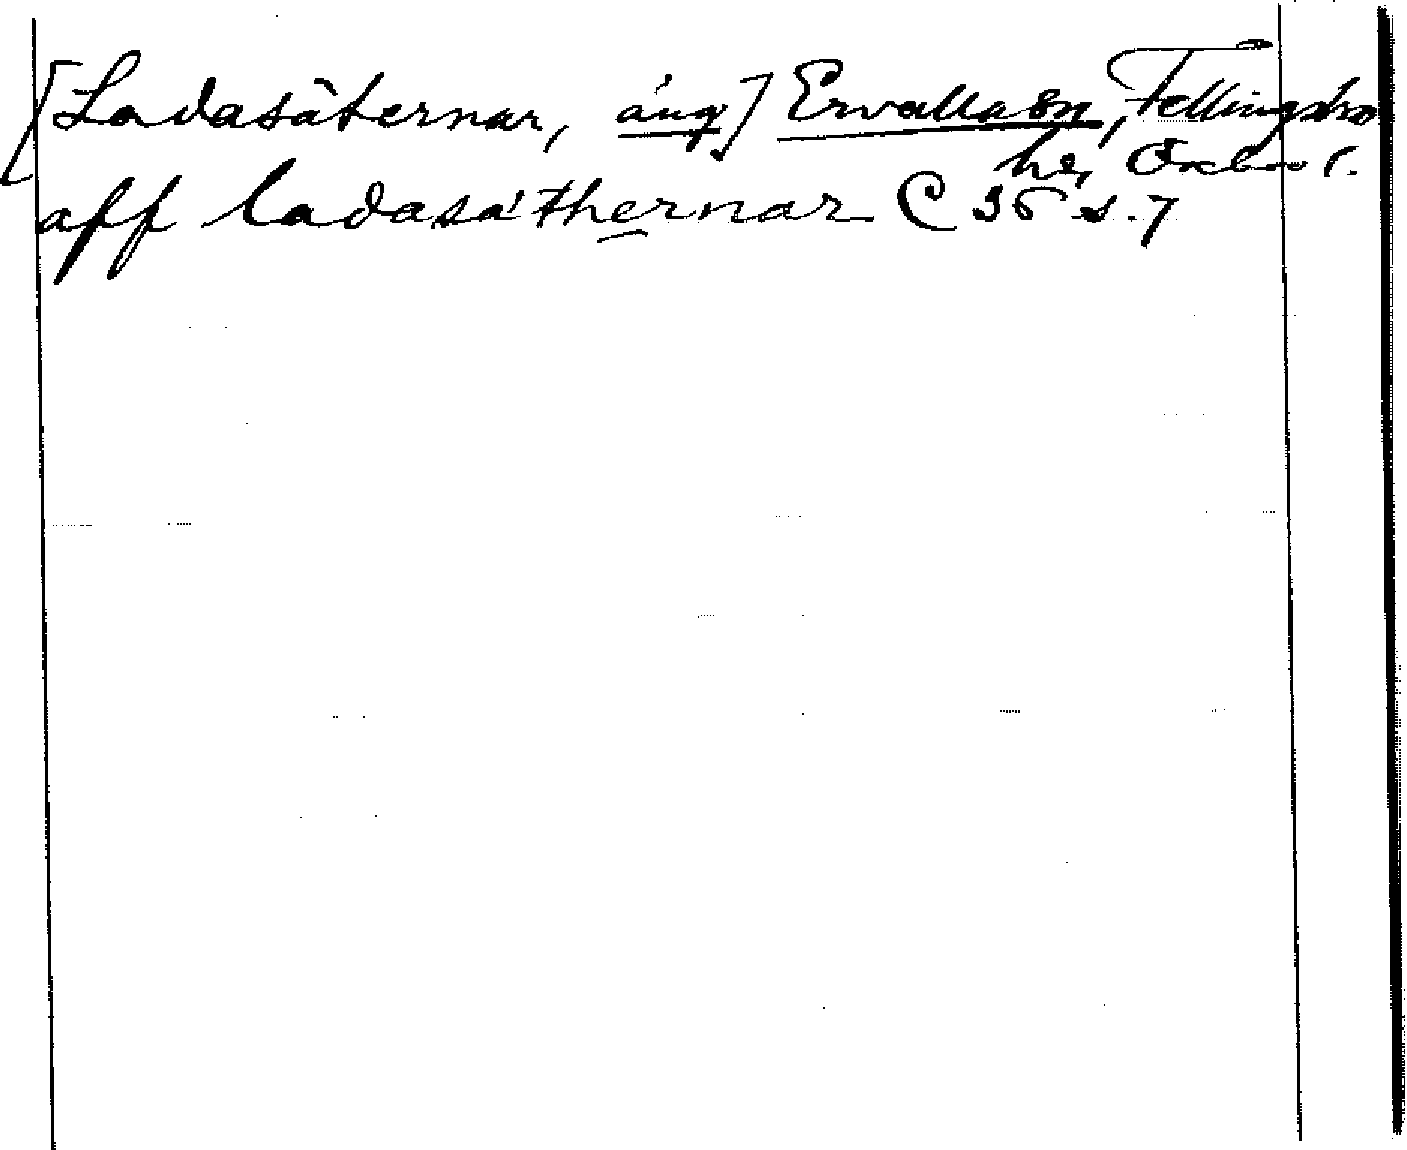 [Ladasäternar, äng] Ervalla sn, Fellingsbro
hd, Örebro l.
aff ladasäthernar C 36 s. 7